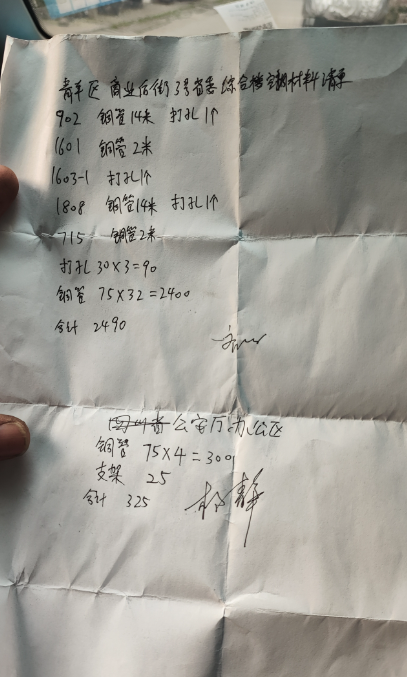 青羊区商业后街3号省委综合楼空调材料清单
902 铜管14米 打孔1个
1601 铜管2米
1603-1 打孔1个
1808 铜管14米 打孔1个
715 铜管2米
打孔 30×3=90
铜管 75×32=2400
合计 2490
四川省公安厅办公区
铜管 75×4=300
支架 25
合计 325